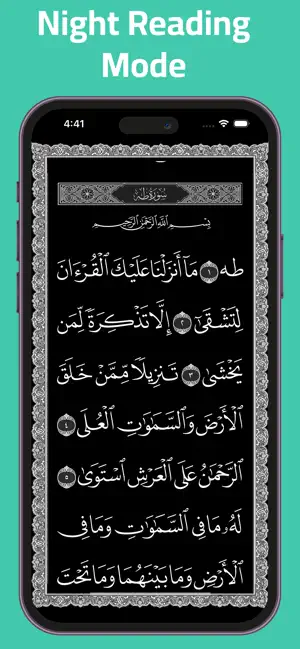 Night Reading
Mode
4:41
سُورَةُ طه
بِسْمِ ٱللَّهِ ٱلرَّحْمَٰنِ ٱلرَّحِيمِ
طه ١ مَآ أَنزَلْنَا عَلَيْكَ ٱلْقُرْءَانَ
لِتَشْقَىٰٓ ٢ إِلَّا تَذْكِرَةً لِّمَن
يَخْشَىٰ ٣ تَنزِيلًا مِّمَّنْ خَلَقَ
ٱلْأَرْضَ وَٱلسَّمَٰوَٰتِ ٱلْعُلَى ٤
ٱلرَّحْمَٰنُ عَلَى ٱلْعَرْشِ ٱسْتَوَىٰ ٥
لَهُۥ مَا فِي ٱلسَّمَٰوَٰتِ وَمَا فِي
ٱلْأَرْضِ وَمَا بَيْنَهُمَا وَمَا تَحْتَ